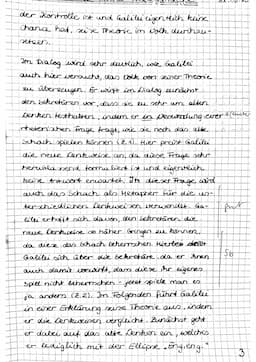 der Kontrolle ist und Galilei eigentlich keine
Chance hat, seine Theorie im Volk durchzu-
setzen.
Im Dialog wird sehr deutlich, wie Galilei
auch hier versucht, das Volk von seiner Theorie
zu überzeugen. Er wirft im Dialog zunächst
den Sekretären vor, dass sie zu sehr am alten
Denken festhalten, indem er in einer
rhetorischen Frage fragt, wie sie noch das alte
Schach spielen können (Z.1). Hier preist Galilei
die neue Denkweise an, da diese Frage sehr
formuliert ist und eigentlich
keine Antwort erwartet. In dieser Frage wird
auch das Schach als Metapher für die un-
terschiedlichen Denkweisen verwendet. Ga-
lilei erhofft sich davon, den Sekretären die
neue Denkweise so näher bringen zu können,
da diese das Schach beherrschen.
Galilei sich über die Sekretäre, da er ihnen
auch damit vorwirft, dass diese ihr eigenes
Spiel nicht beherrschen - jetzt spiele man es
ja anders (Z.2). Im Folgenden führt Galilei
in einer Erklärung seine Theorie aus, indem
er die Denkweisen vergleicht. Zunächst geht
er dabei auf das alte Denken ein, welches
er lediglich mit der Ellipse "Eng, eng."
3